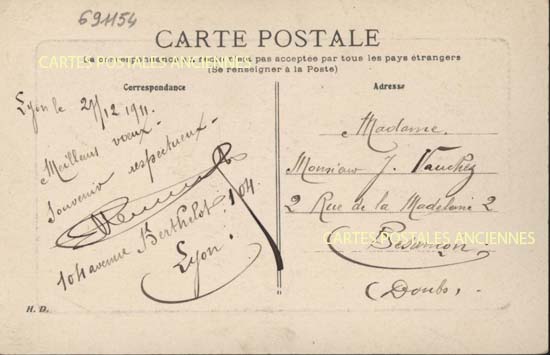 691154
CARTE POSTALE
La correspondance au recto n'est pas acceptée par tous les pays étrangers
(Se renseigner à la Poste)
CARTES POSTALES ANCIENNES
Correspondance
Adresse
Lyon le 29/12 1911.
Meilleurs vœux.
Souvenir respectueux.
104 avenue Berthelot. 104.
Lyon.
Madame.
Monsieur J. Vauchez
2 Rue de la Madeleine 2
CARTES POSTALES ANCIENNES
Besançon.
(Doubs.
H. D.